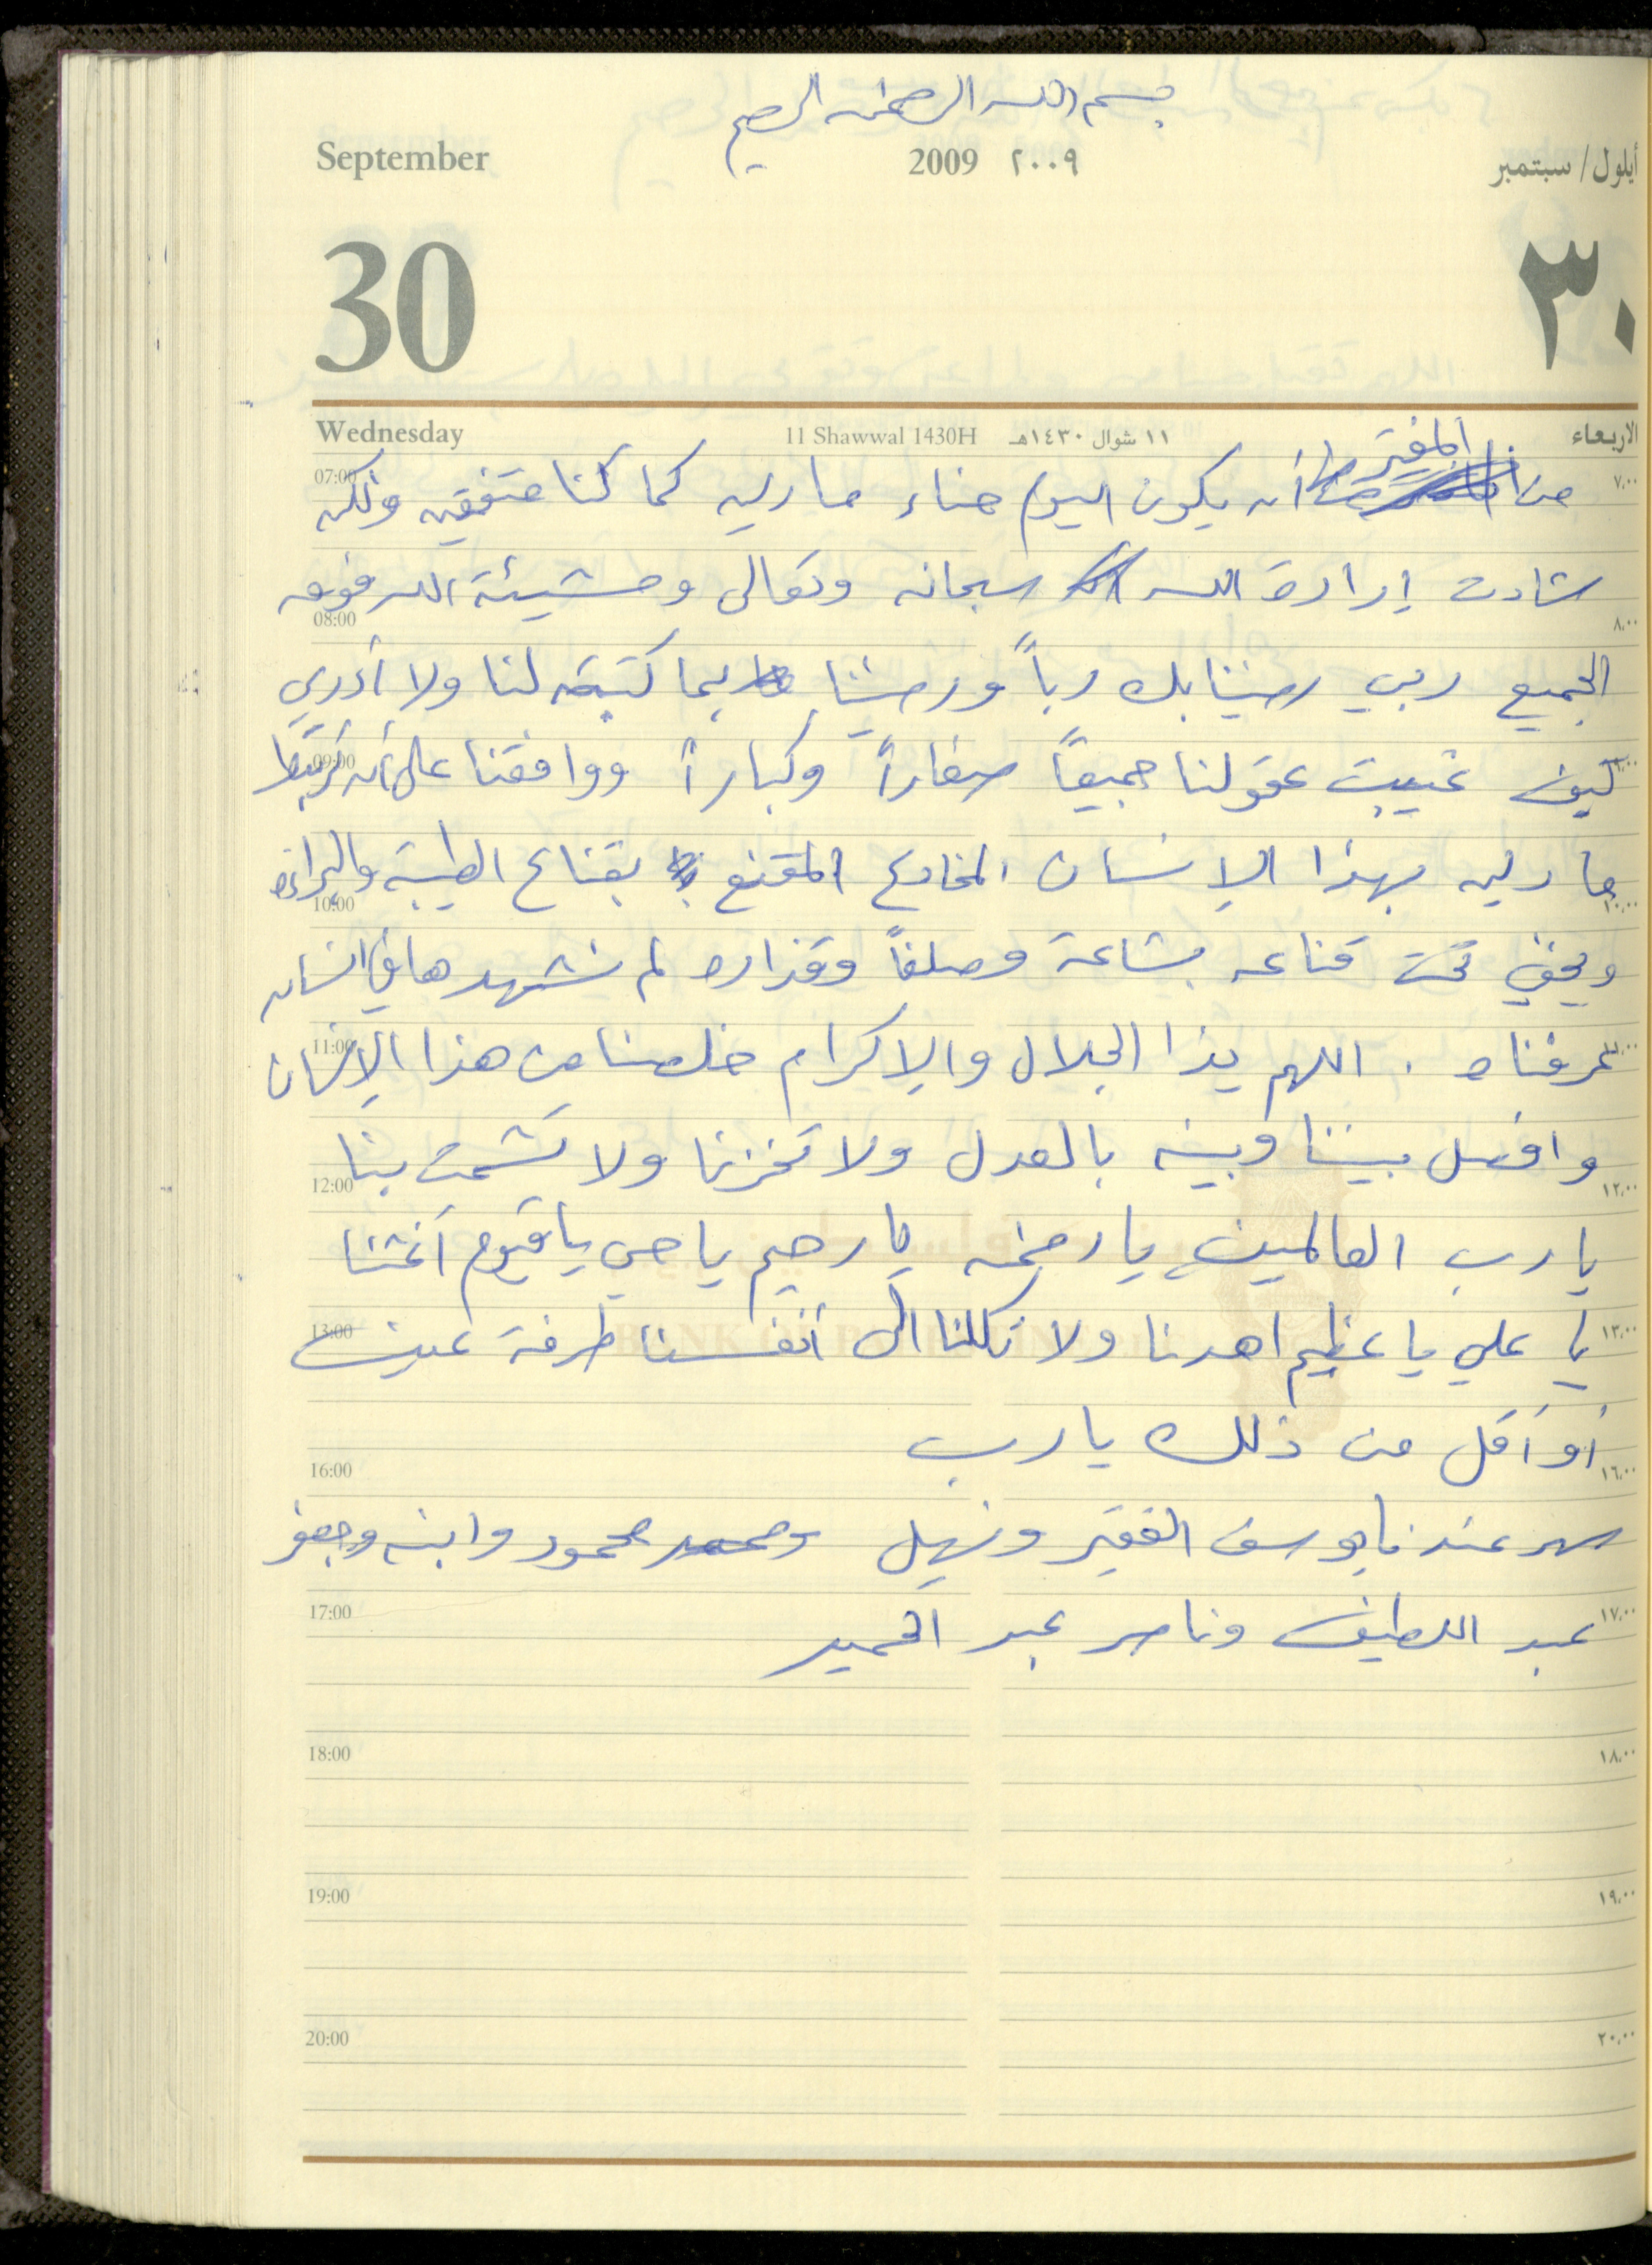 بسم الله الرحمن الرحيم
September 2009 ٢٠٠٩ أيلول / سبتمبر
30 ٣٠
Wednesday 11 Shawwal 1430H ١١ شوال ١٤٣٠هـ الاربعاء
07:00 من المفترض أن يكون اليوم حناء مارلين كما كنا متفقين ولكن ٧,٠٠
شاءت إرادة الله سبحانه وتعالى ومشيئة الله فوق
08:00 ٨,٠٠
الجميع ربي رضينا بك رباً ورضينا بما كتبته لنا ولا أدري
09:00 كيف غيبت عقولنا جميعاً صغاراً وكباراً ووافقنا على أن نربط ٩,٠٠
مارلين بهذا الإنسان المخادع المقنع بقناع الطيبة والبراءة
10:00 ١٠,٠٠
ويخفي تحت قناعه بشاعة وصلفاً وقذارة لم نشهدها في انسان
11:00 عرفناه . اللهم يذا الجلال والإكرام خلصنا من هذا الإنسان ١١,٠٠
وافصل بيننا وبينه بالعدل ولا تخزنا ولا تشمت بنا
12:00 ١٢,٠٠
يا رب العالمين يا رحمن يا رحيم يا حي يا قيوم أغثنا
BANK OF PALESTINE
13:00 يا علي يا عظيم اهدنا ولا تكلنا الى أنفسنا طرفة عين ١٣,٠٠
أو أقل من ذلك يا رب
16:00 ١٦,٠٠
سهر عندنا يوسف الفقير ونهيل ومحمود وابنه وجعفر
17:00 عبد اللطيف وناصر عبد الحميد ١٧,٠٠
18:00 ١٨,٠٠
19:00 ١٩,٠٠
20:00 ٢٠,٠٠